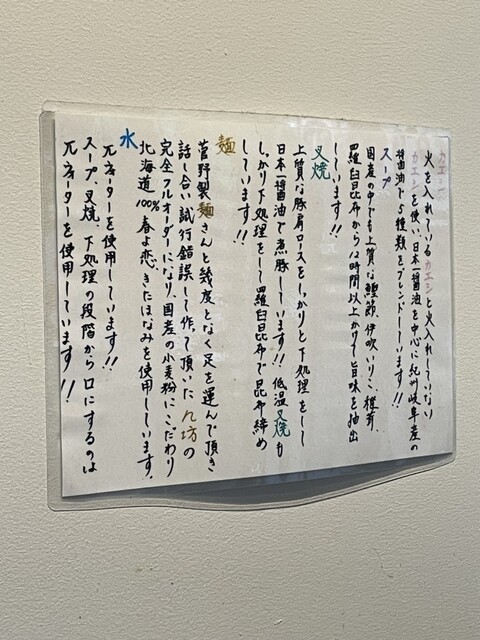 カエシ
火を入れているカエシと火入れしていない
カエシを使い、日本一醤油を中心に紀州岐阜産の
醤油で5種類をブレンドしています!!
スープ
国産の中でも上質な鰹節、伊吹いりこ、椎茸、
羅臼昆布から12時間以上かけて旨味を抽出
しています!!
叉焼
上質な豚肩ロースをしっかりと下処理をして
日本一醤油で煮豚しています!!低温叉焼も
しっかり下処理をして羅臼昆布で昆布締め
しています!!
麺
菅野製麺さんと幾度となく足を運んで頂き
話し合い試行錯誤して作って頂いたん坊の
完全フルオーダーになり、国産の小麦粉にこだわり
北海道100%春よ恋、きたほなみを使用しています。
水
πウォーターを使用しています!!
スープ、叉焼、下処理の段階から口にするのは
πウォーターを使用しています!!